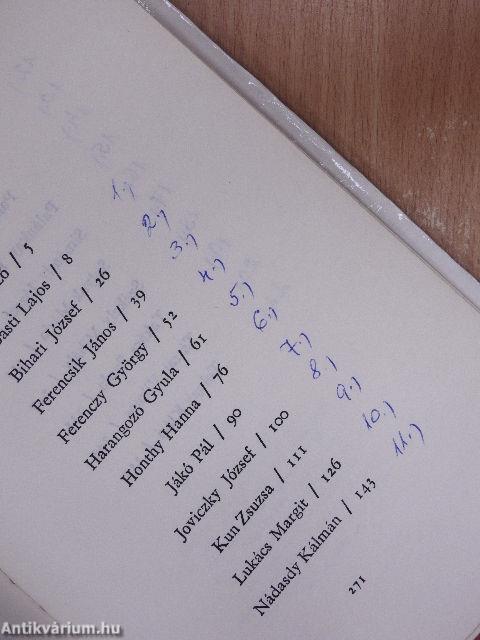 5
Lajos / 8 1.)
Bihari József / 26 2.)
Ferencsik János / 39 3.)
Ferenczy György / 52 4.)
Harangozó Gyula / 61 5.)
Honthy Hanna / 76 6.)
Jákó Pál / 90 7.)
Joviczky József / 100 8.)
Kun Zsuzsa / 111 9.)
Lukács Margit / 126 10.)
Nádasdy Kálmán / 143 11.)
271
Antikvárium.hu